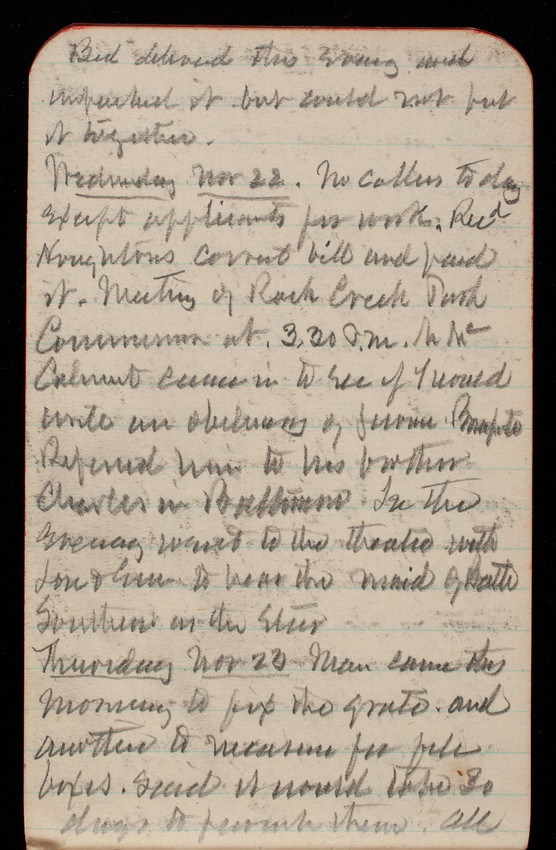 Bed delivered this evening and
unpacked it but could not put
it together.
Wednesday Nov 22. No callers to day
except applicants for work. Recd
Houghtons correct bill and paid
it. Meeting of Rock Creek Park
Commission at 3.30 P.m. Mr Mc
Calmont came in to see if I would
write an obituary of Jerome Bonaparte
Referred him to his brother
Charles in Baltimore In the
Evening went to the theatre with
to hear the maid of Bath
Southern in the
Thursday Nov 23 Man came this
morning to fix the grate. and
another to measure for file
boxes. Said it would take 30
days to furnish them. All